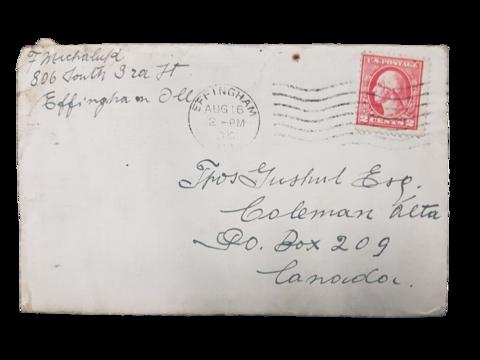 F Michaluk
806 South 3rd St
Effingham Ill
EFFINGHAM
AUG 16
2 - PM
ILL.
U.S. POSTAGE
2 CENTS 2
Thos Gushul Esq.
Coleman Alta
P.O. Box 209
Canada.